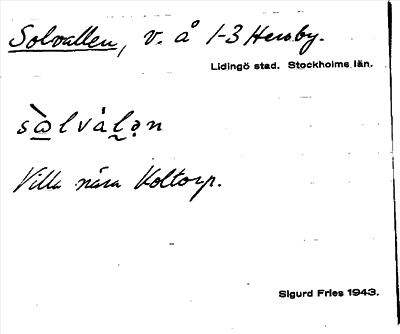 Solvallen, v. å 1-3 Hersby.
Lidingö stad. Stockholms län.
sòlválən
Villa nära Koltorp.
Sigurd Fries 1943.